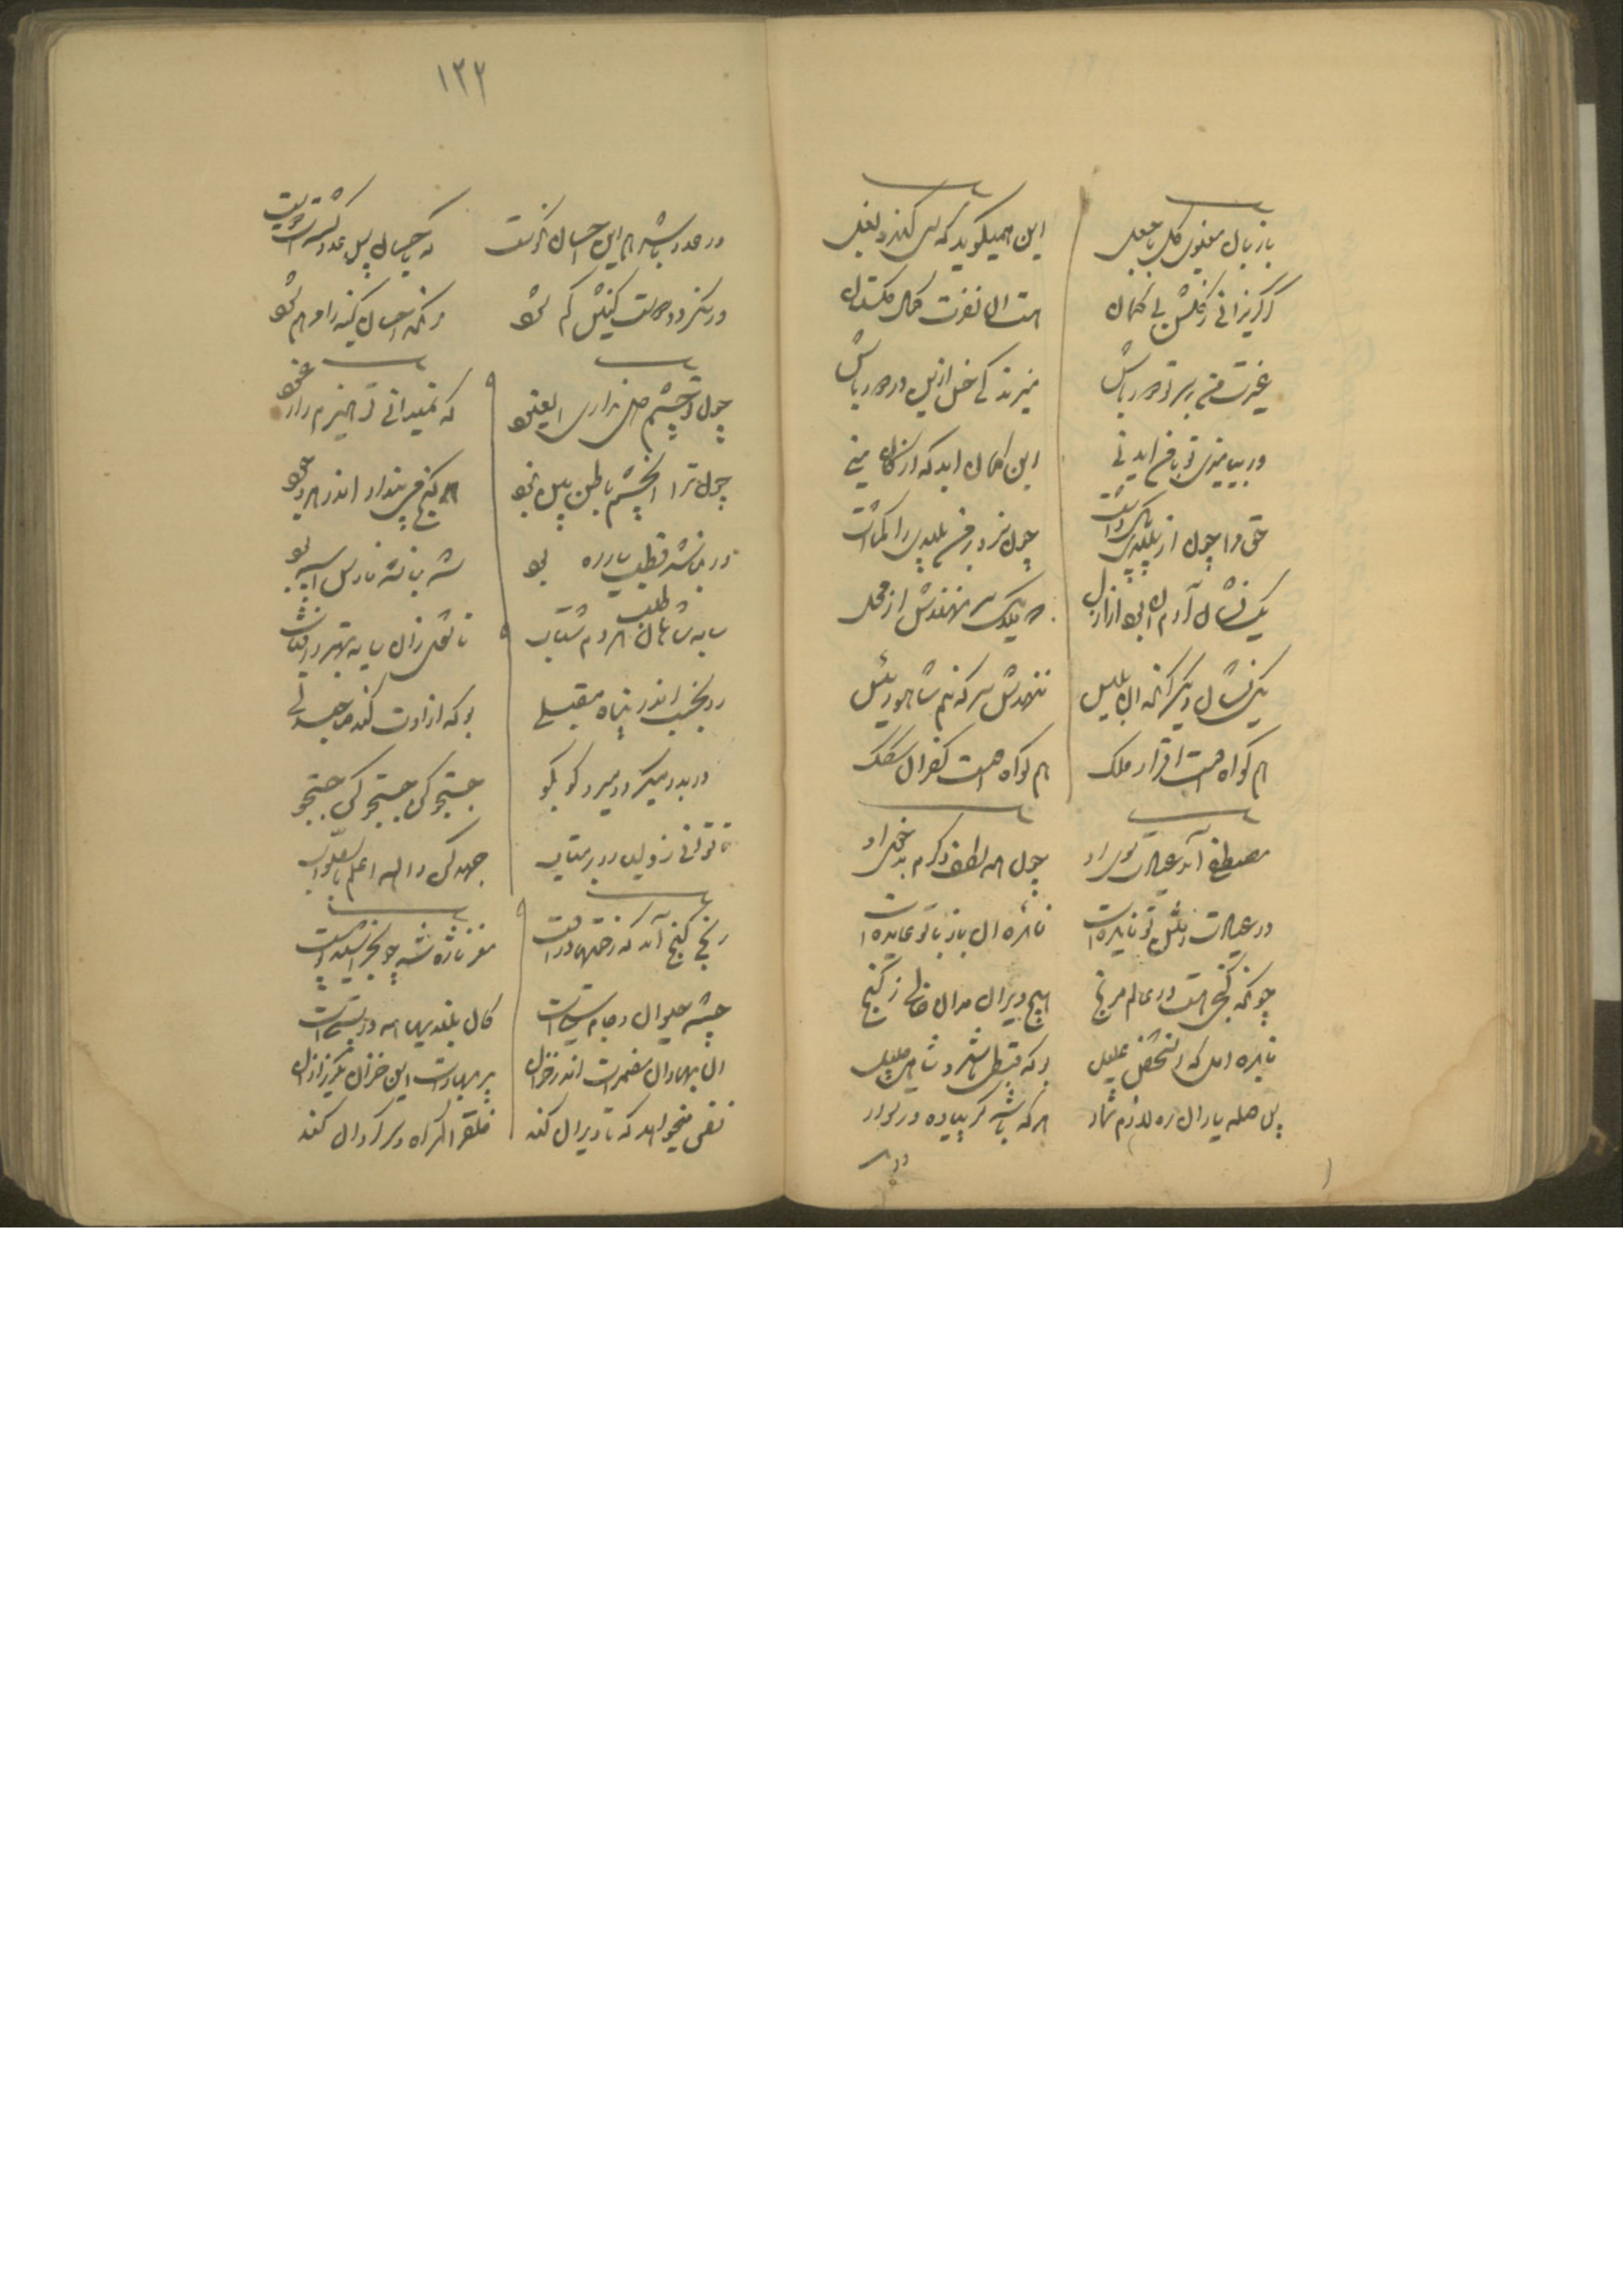 باز بال معنوی گل با جعل
این همیگوید که ای گنده بغل
گر گریزانی ز گلشن بی گمان
هست آن نفرت کمال گلستان
غیرت من بر سر تو دور باش
میزند کای خس ازین در دور باش
ور بیامیزی تو با من ای دنی
این گمان آید که از کان منی
حق مرا چون از پلیدی پاک داشت
چون سزد بر من پلیدی را گماشت
یک نشان آدم آن بود از ازل
که ملایک سر نهندش از محل
یک نشان دیگر آنکه آن بلیس
ننهدش سر که منم شاه و رئیس
هم گواه اوست اقرار ملک
هم گواه اوست کفران سگک
مصطفی آمد عیادت سوی او
چون همه لطف و کرم بد خوی او
در عیادت رفتن تو فایده است
فایده آن باز با تو عایده است
چونکه گنجی هست در عالم مرنج
هیچ ویران مدان خالی ز گنج
فایده اول که آن شخص علیل
بوکه قطبی باشد و شاه جلیل
پس صله یاران ره لازم شمار
هر که باشد گر پیاده ور سوار
ور
۱۲۲
ور عدو باشد هم این احسان نکوست
که باحسان بس عدو گشتست دوست
ور نگردد دوست کینش کم شود
زآنکه احسان کینه را مرهم شود
چون دو چشم دل نداری ای عنود
که نمیدانی تو هیزم را ز عود
چون ترا آن چشم باطن بین نبود
گنج می‌پندار اندر هر وجود
ور نباشد قطب یار ره بود
شه نباشد فارس اسپه بود
سایه شاهان طلب هر دم شتاب
تا شوی زان سایه بهتر ز آفتاب
رو بخسب اندر پناه مقبلی
بوکه آزادت کند صاحبدلی
در بدر میگرد و میرو کو بکو
جستجو کن جستجو کن جستجو
تا توانی ز اولیا رو برمتاب
جهد کن والله اعلم بالصواب
رنج گنج آمد که رحمتها دروست
مغز تازه شد چو بخراشید پوست
چشمه حیوان و جام مستی است
کان بلندیها همه در پستی است
آن بهاران مضمرست اندر خزان
پر بهارست این خزان مگریز از آن
نفس میخواهد که تا ویران کند
خلق را گمراه و سرگردان کند